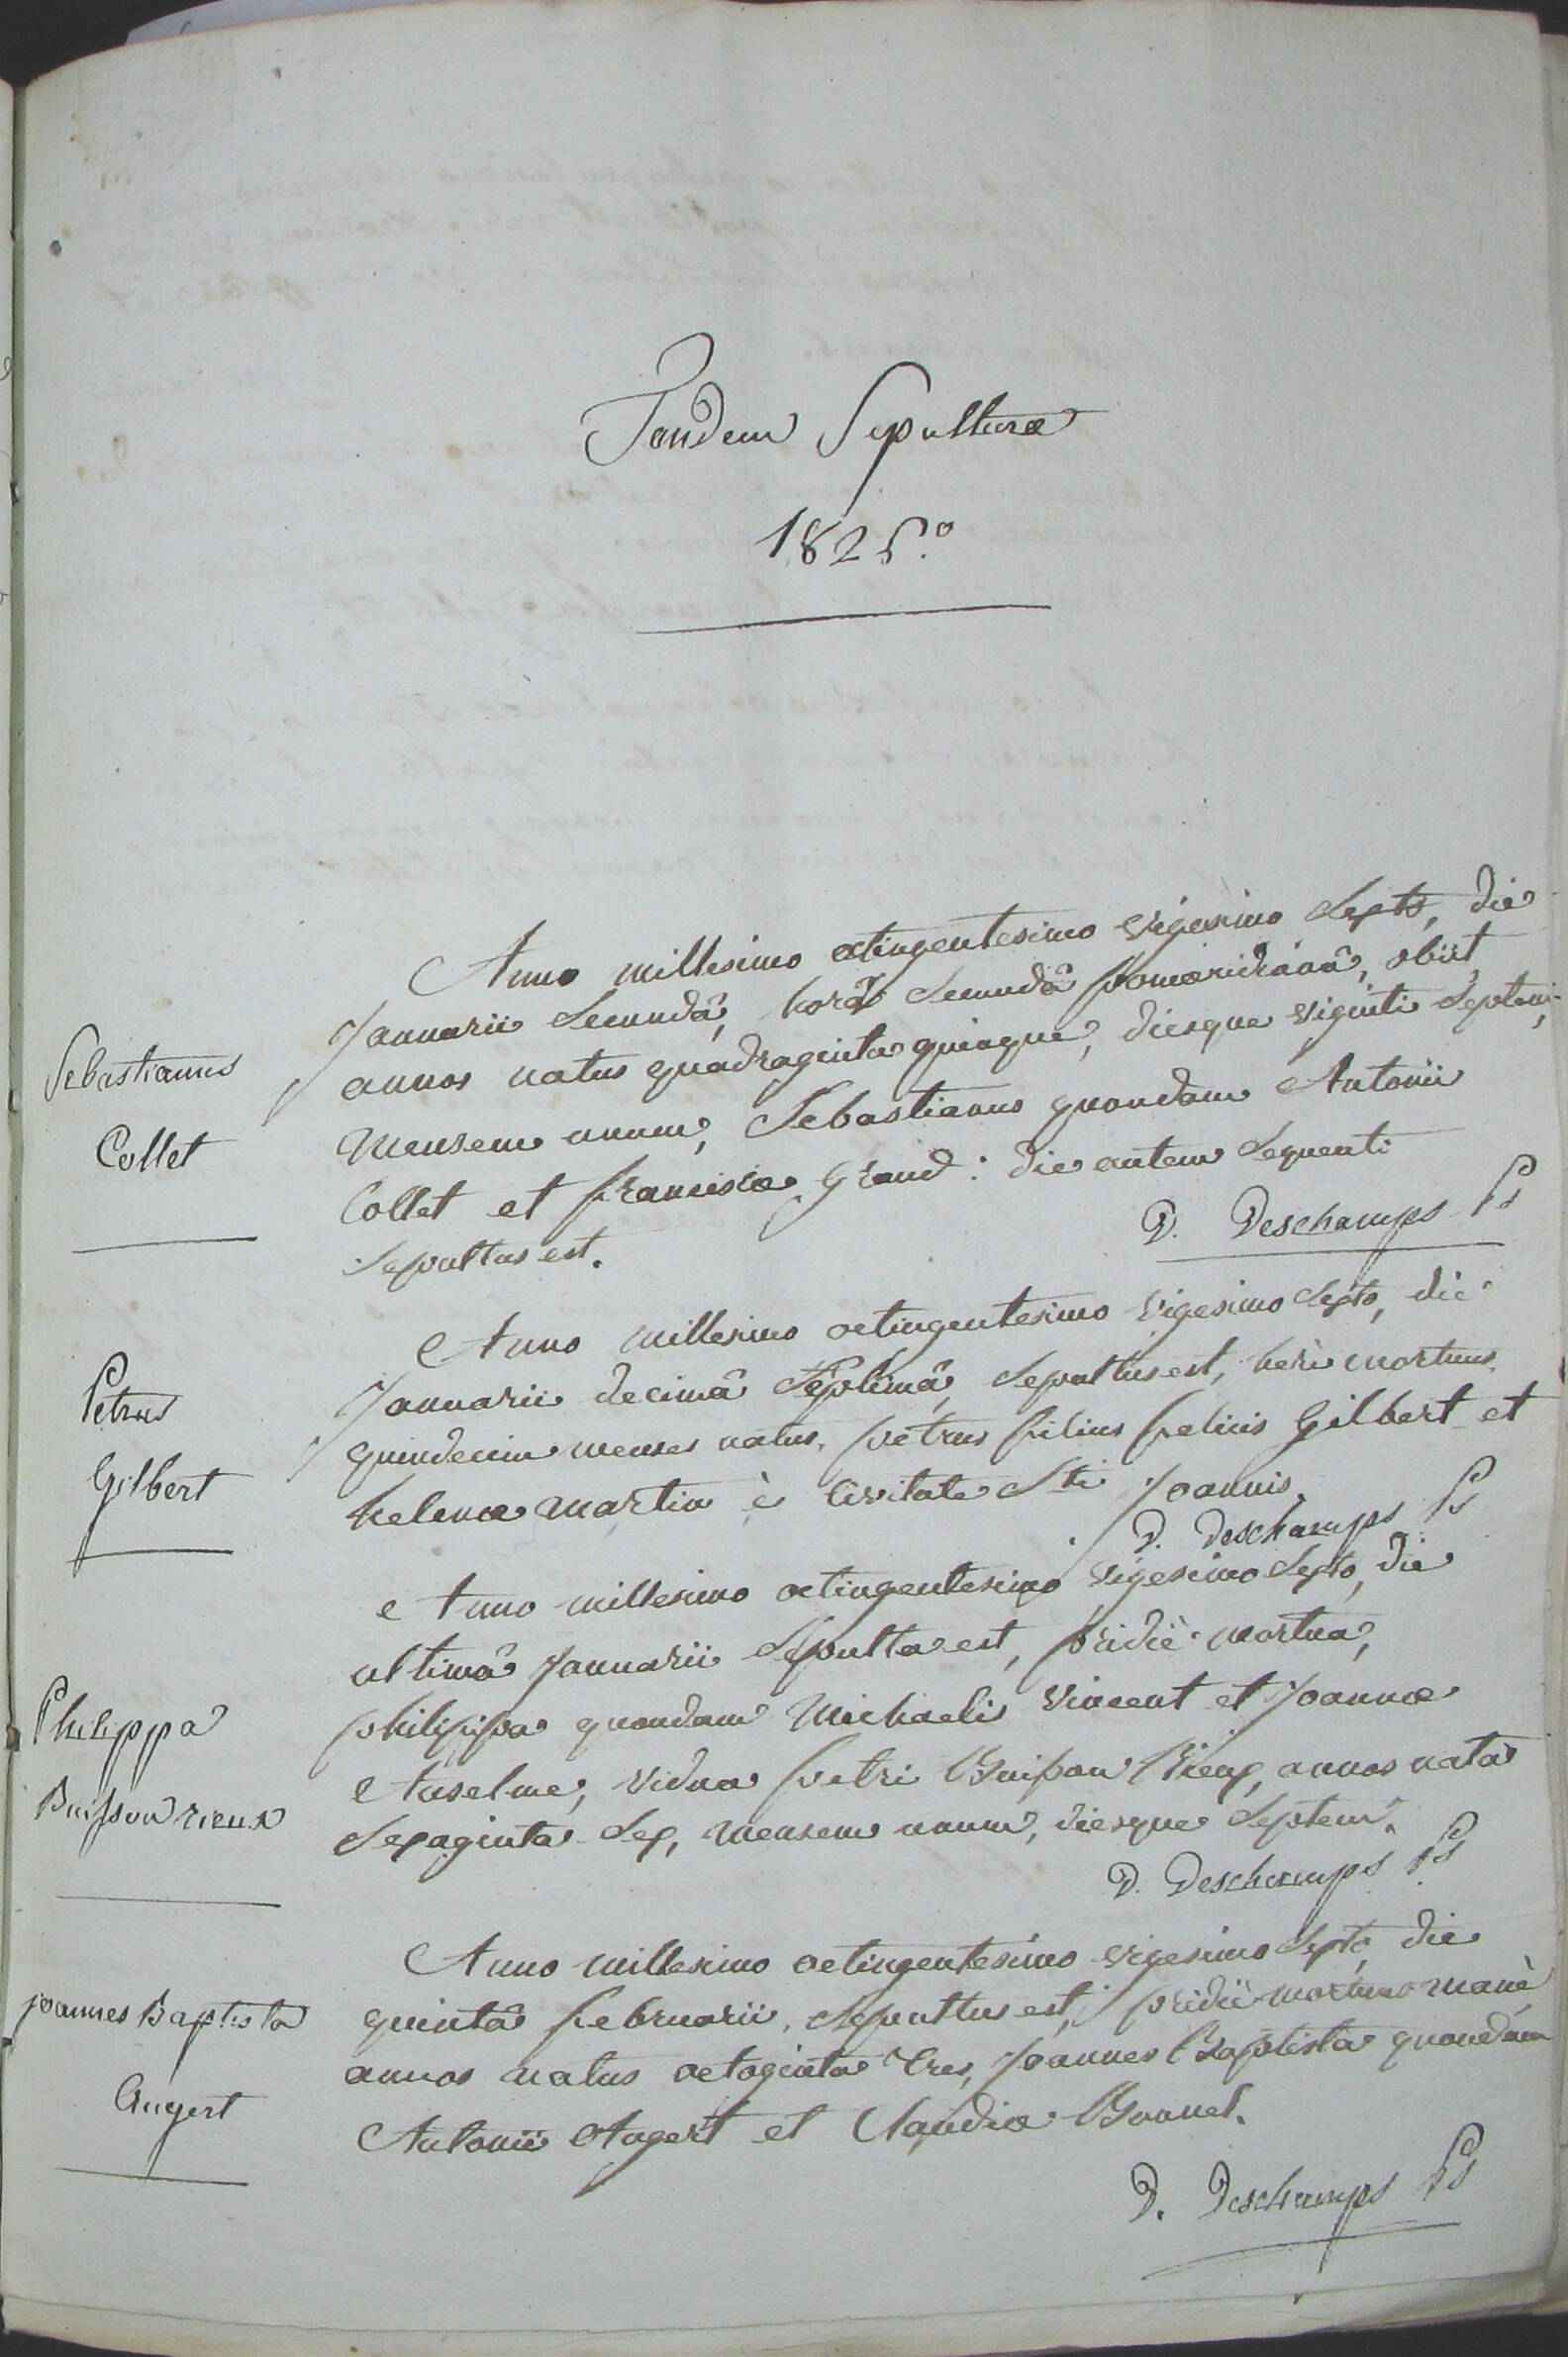 Tandem Sepulturæ
1825.o
Anno millesimo octingentesimo vigesimo Septo, die
Januarii Secundâ, horâ Secundâ pomæridianâ, obiit
annos natus quadraginta quinque, diesque viginti Septem,
Sebastianus
Mensem unum, Sebastianus quondam Antonii
Collet
Collet et franciscæ Grand : die autem Sequenti
Sepultus est.
D. Deschamps Ps
Anno millesimo octingentesimo vigesimo Septo, die
Januarii decimâ Septimâ, Sepultus est, heri mortuus
Petrus
quindecim menses natus, petrus filius felicis Gilbert et
Gilbert
helenæ Martin è Civitate Sti Joannis.
D. Deschamps Ps
Anno millesimo octingentesimo vigesimo Septo, die
ultimâ Januarii Sepulta est, pridiè mortua,
Philippa
philippa quondam Michaelis Vincent et Joannæ
Buisson rieux
Anselme, vidua petri Buisson Rieux, annos nata
Sexaginta Sex, mensem unum, diesque Septem.
D. Deschamps Ps
Anno millesimo octingentesimo vigesimo Septo, die
Joannes Baptista
quintâ februarii, Sepultus est, pridiè mortuus manè
annos natus octoginta tres, Joannes Baptista quondam
Augert
Antonii Augert et Claudiæ Bonnel.
D. Deschamps Ps